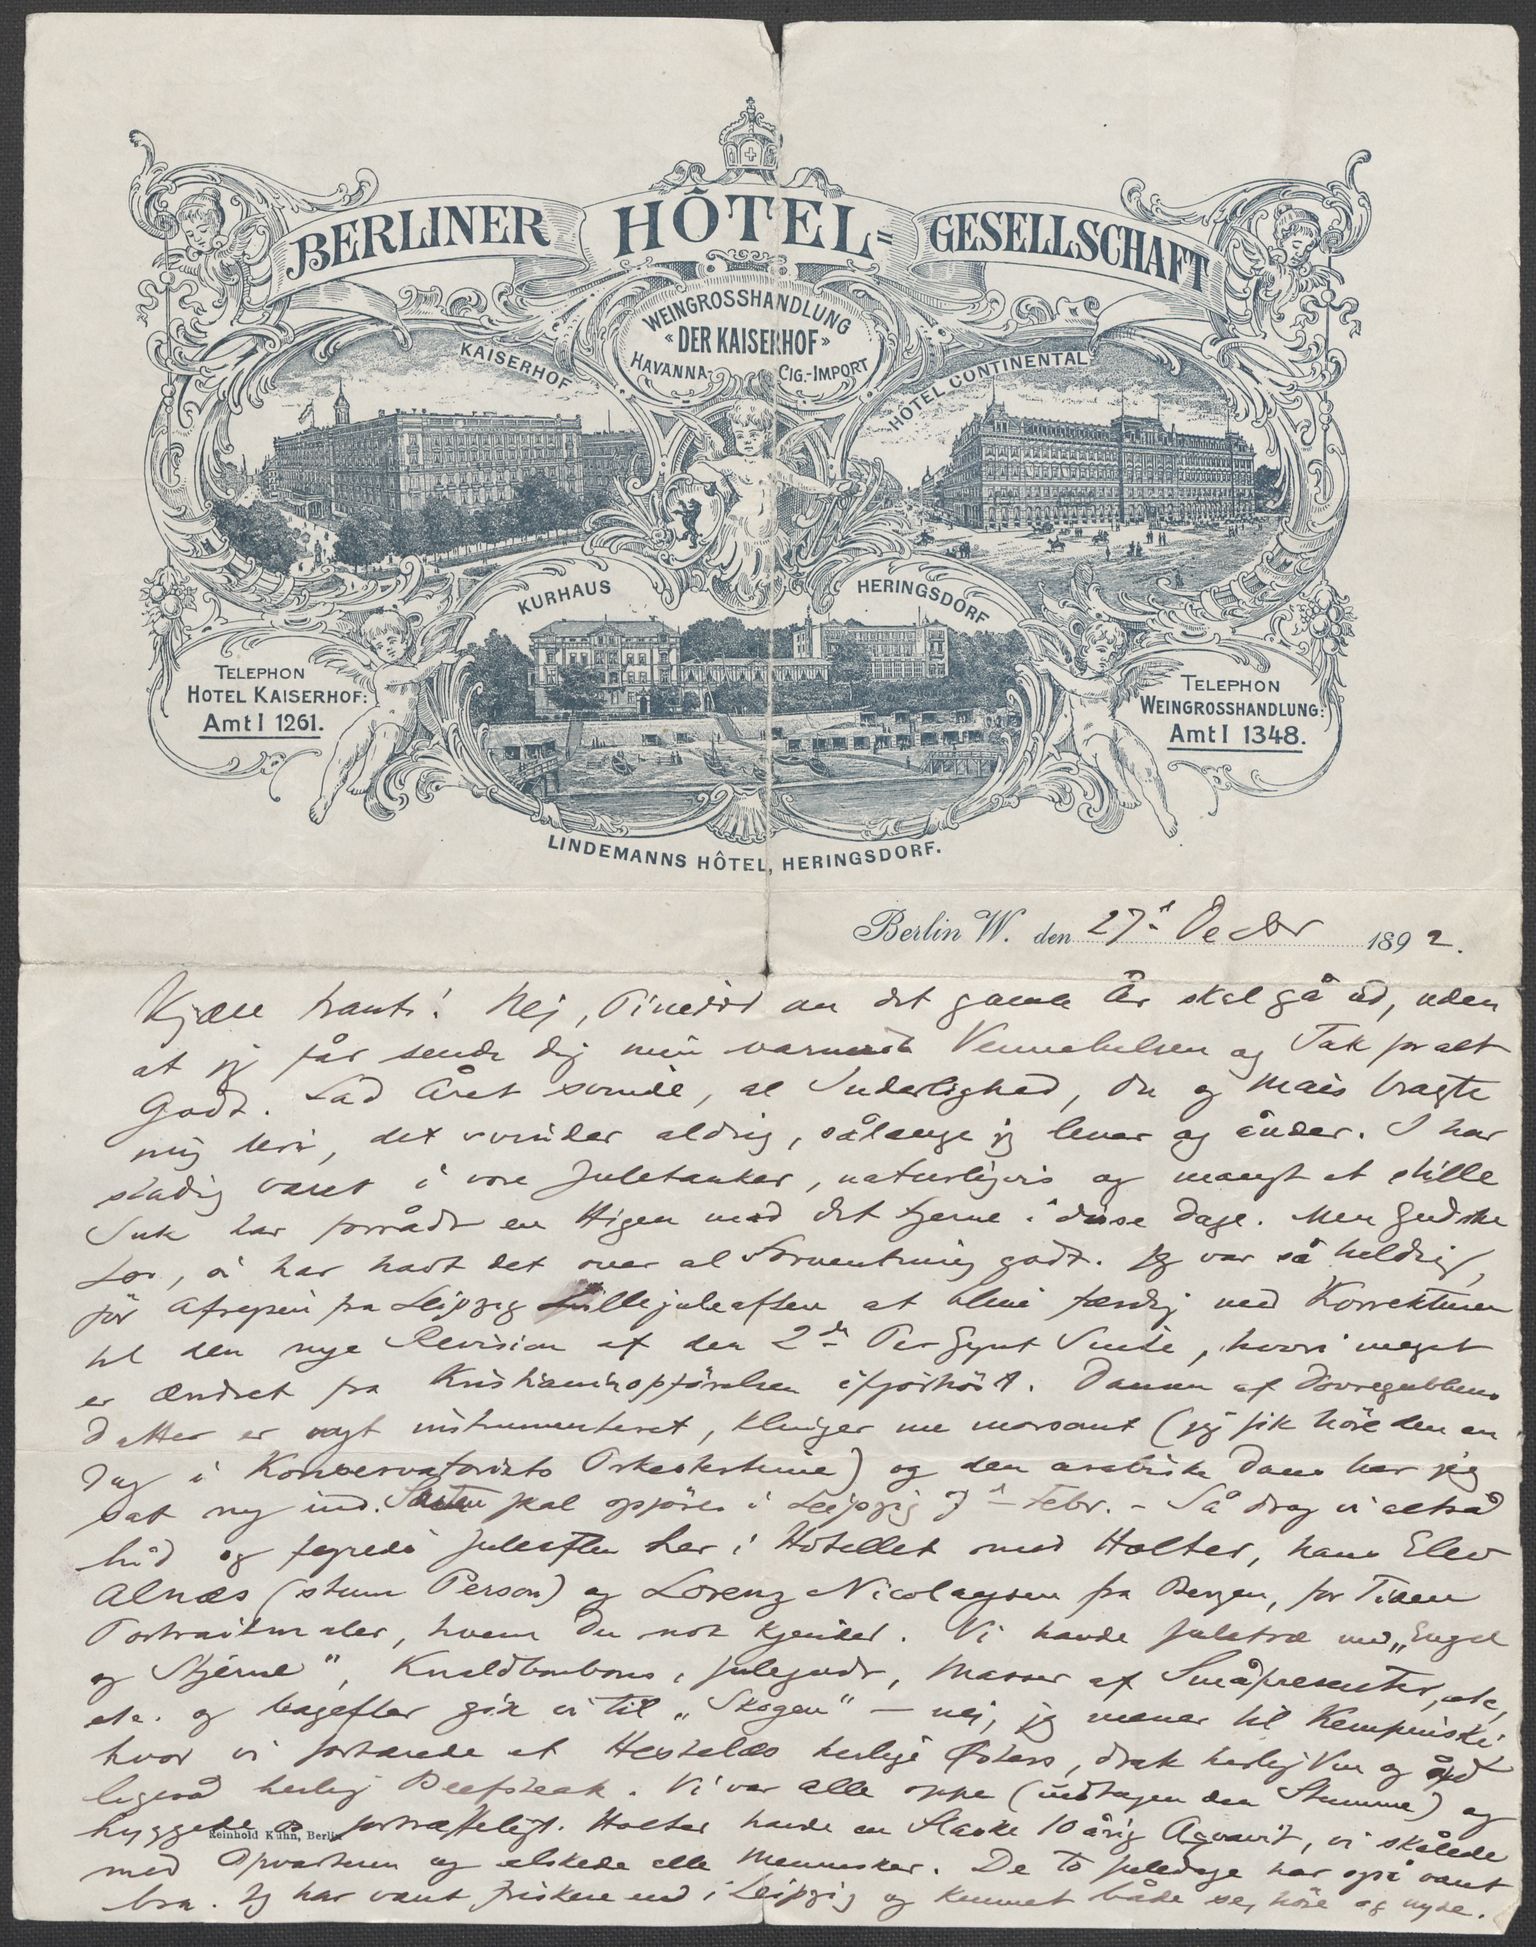 BERLINER HÔTEL= GESELLSCHAFT
WEINGROSSHANDLUNG
«DER KAISERHOF»
HAVANNA- CIG.-IMPORT
KAISERHOF
HÔTEL CONTINENTAL
KURHAUS HERINGSDORF
TELEPHON
HOTEL KAISERHOF:
Amt I 1261.
TELEPHON
WEINGROSSHANDLUNG:
Amt I 1348.
LINDEMANNS HÔTEL, HERINGSDORF.
Berlin W. den 27 Decbr 1892.
Kjære Frants! Nej, om det gamle År skal gå ud, uden
at jeg får sende dig min varmeste Vennehilsen og Tak for alt
Godt. Lad Året svinde, al Inderlighed, Du og Mais bragte
mig heri, det svinder aldrig, sålænge jeg lever og ånder. I har
stadig været i vore Juletanker, naturligvis og mangt et stille
Suk har forrådt en Higen mod det fjerne i disse Dage. Men Gudske
Lov, vi har havt det over al Forventning godt. Jeg var så heldig,
før Afrejsen fra Leipzig Lillejuleaften at blive færdig med Korrekturen
til den nye Revision af den 2den Per Gynt Suite, hvori meget
er ændret fra Kristianiaopførelsen ifjorhøst. Dansen af Dovregubbens
Datter er nyt instrumenteret, klinger nu morsomt (jeg fik høre den en
Dag i Konservatoriets Orkestertime) og den arabiske Dans har jeg
sat ny ind. Suiten skal opføres i Leipzig Febr. – Så drog vi altså
hid og fejrede Juleaften her i Hotellet med Halter, hans Elev
Alnæs (stum Person) og Lorenz Nicolaysen fra Bergen, for Tiden
Portraitmaler, hvem Du nok kjender. Vi havde Juletræ med „Engel
og Stjerne", Knaldbonbons, Julegodt, Masser af Småpresenter, etc,
etc. og bagefter gik vi til „Skogen" – nej, jeg mener til Kempinski
hvor vi fortærede et Hestelæs herlige Østers, drak herlig Vin og åd
ligeså herlig Beefsteak. Vi var alle oppe (undtagen den Stumme) og
hyggede os fortræffeligt. Halter havde en Flaske 10 årig Aqvavit, vi skålede
Reinhold Kühn, Berlin
med Opvarteren og elskede alle Mennesker. De to Juledage har også været
bra. Jeg har været friskere end i Leipzig og kunnet både se, høre og nyde.